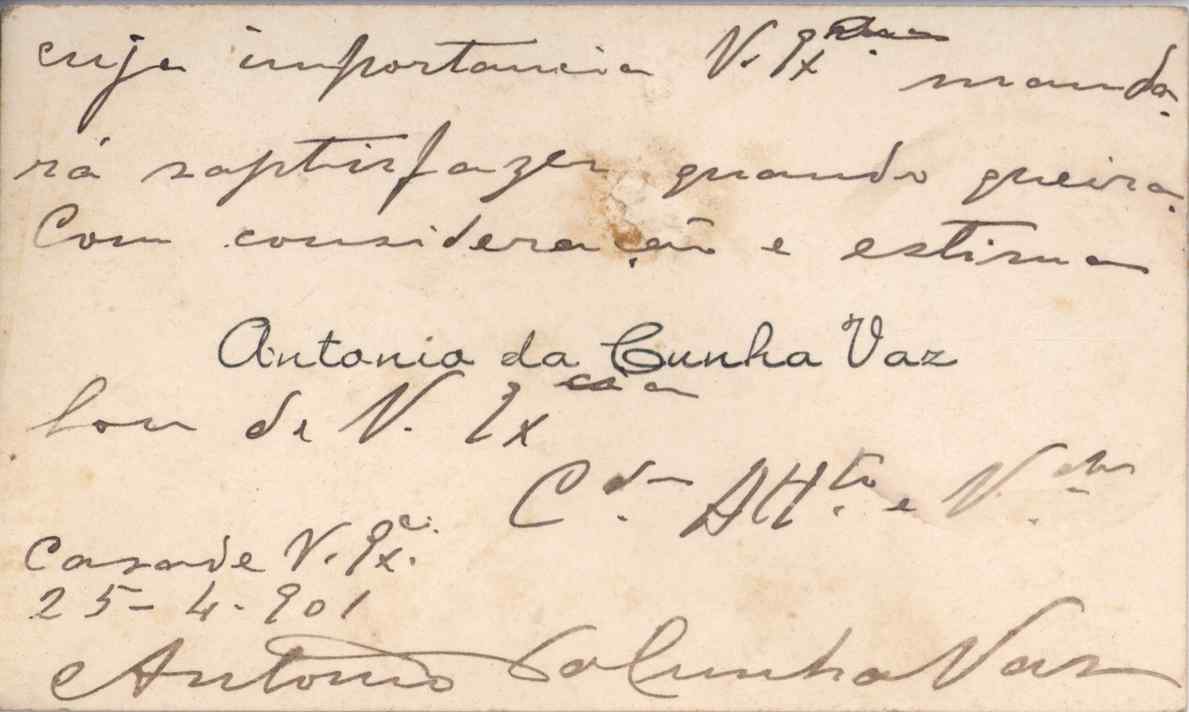 cuja importancia V. Ex.cia manda-
rá saptisfazer quando queira.
Com consideração e estima
Antonio da Cunha Vaz
Sou de V. Ex
C.do Att.to e V.dor
Casa de V. Ex.ª
25-4-901
Antonio da Cunha Vaz